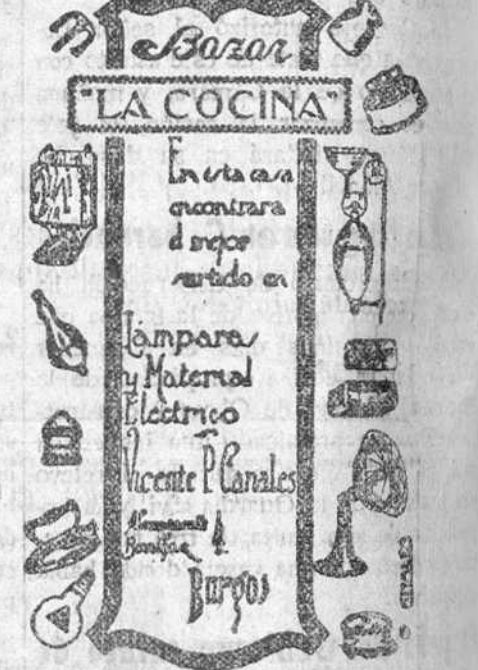 Bazar
"LA COCINA"
En esta casa
encontrara
el mejor
surtido en
Lámparas
y Material
Electrico
Vicente P. Canales
Almirante
Bonifaz
Burgos